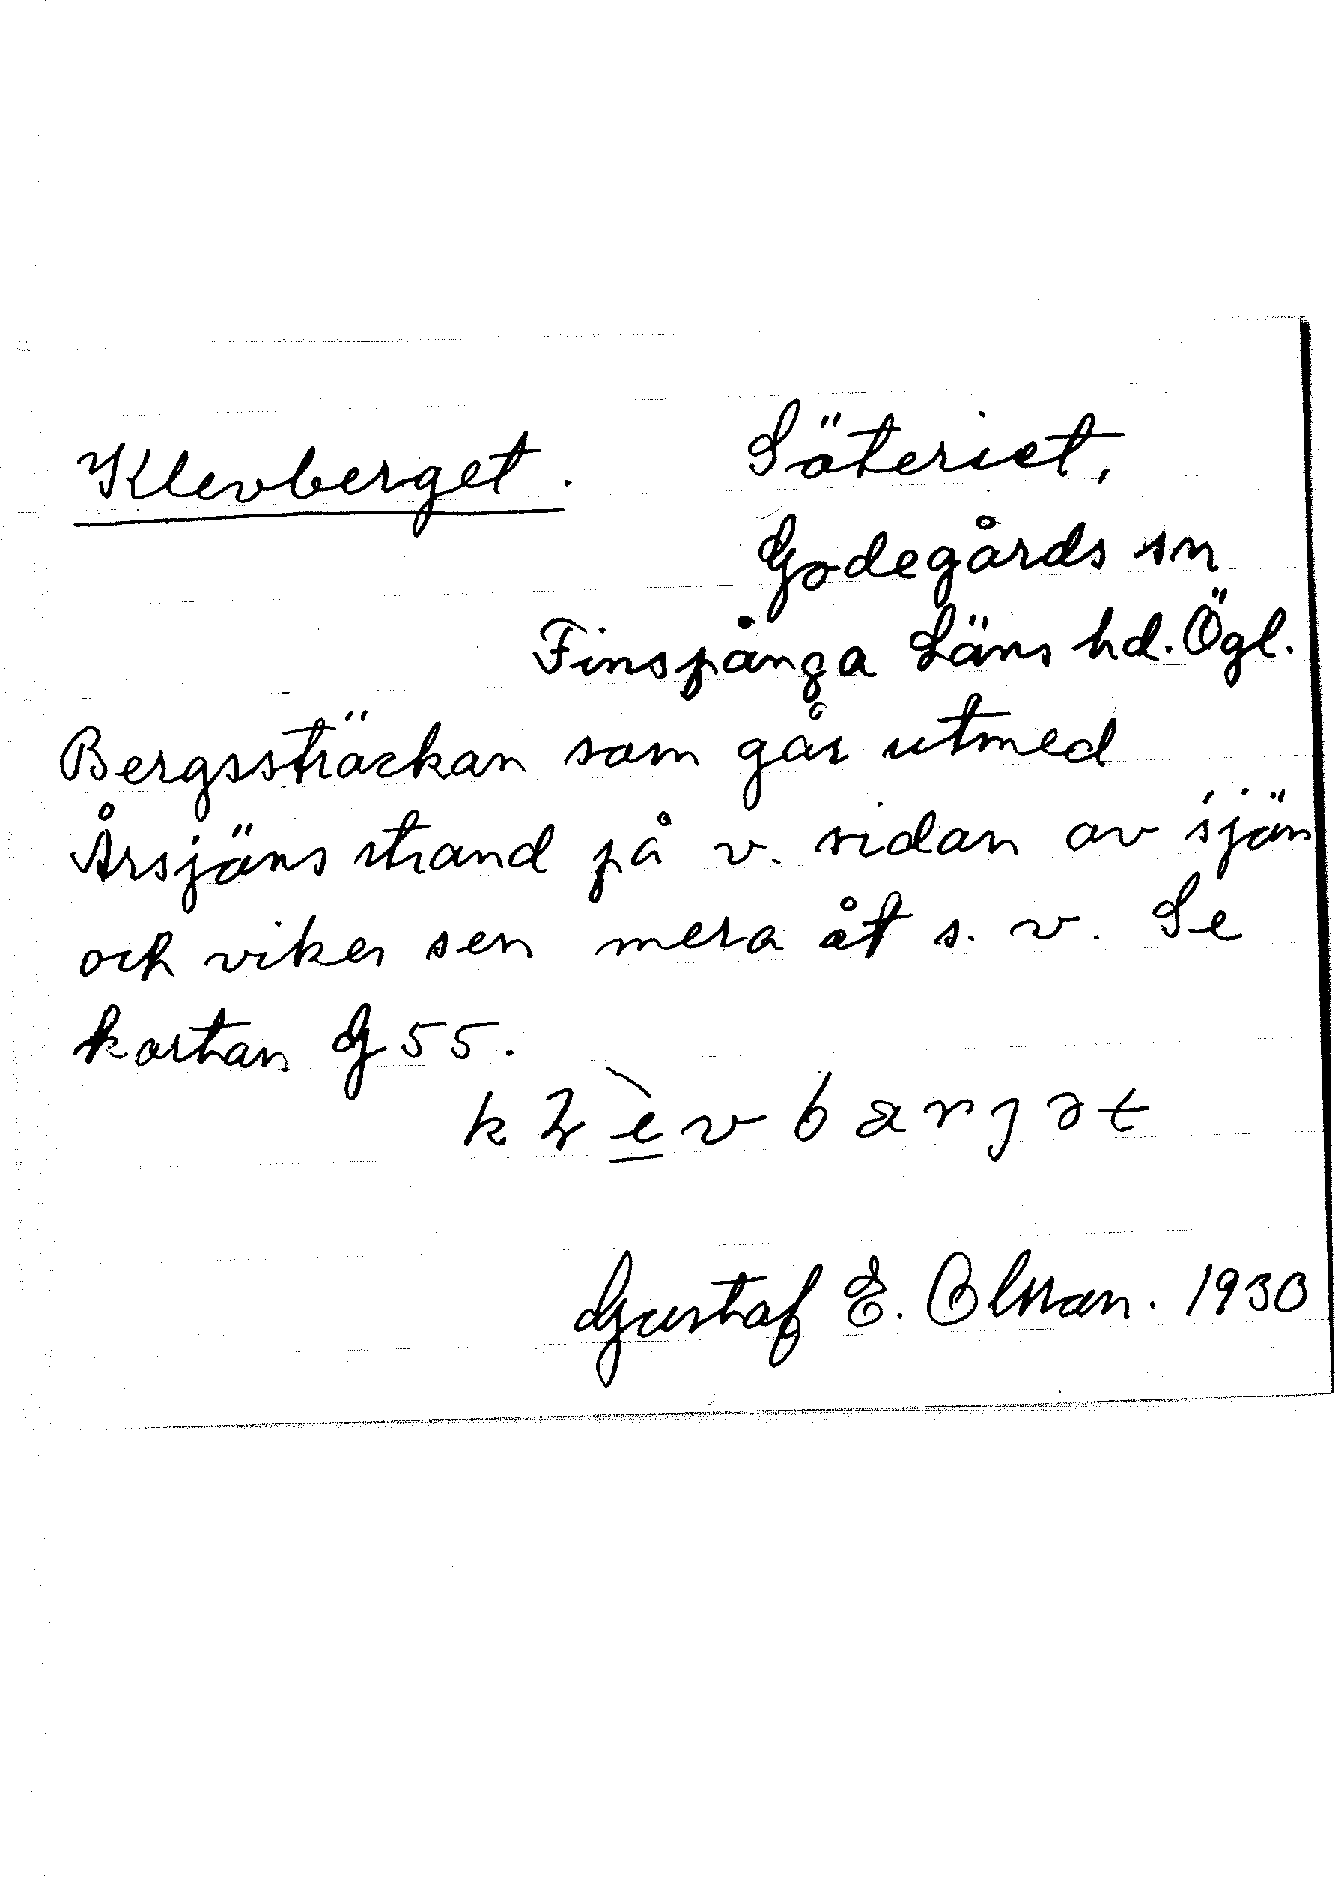 Klevberget. Säteriet,
Godegårds sn
Finspånga Läns hd. Ögl.
Bergssträckan som går utmed
Årsjöns strand på v. sidan av sjön
och viker sen mera åt s. v. Se
kartan G 55.
Gustaf E. Olsson. 1930